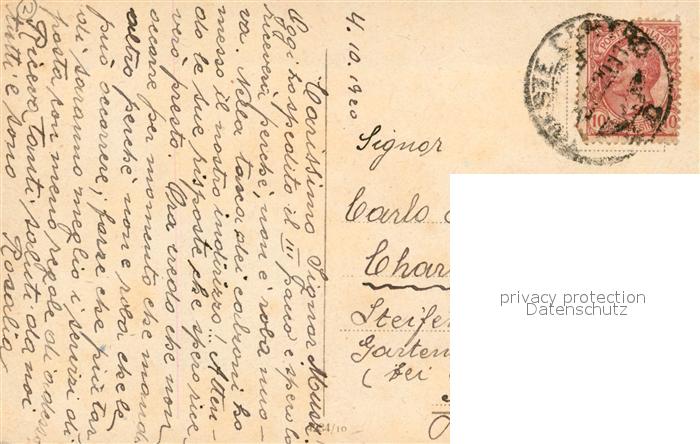 4. 10. 1920
Carissimo Signor Mussi!
Oggi ho spedito il III pacco e spero lo
riceverà, perchè, non è roba nuo-
va. Nella tasca dei calzoni ho
messo il nostro indirizzo! Atten-
do le sue risposte che spero rice-
verò presto. Ora credo che non
occorre per momento che mandi
altro perchè non è roba che le
può occorere, forse che più tar-
di saranno meglio i servizi di
posta con meno
Riceva tanti saluti da noi
tutti e sono
Rosalia
Signor
Carlo
Char
Steife
Garten
(bei
10
privacy protection
Datenschutz